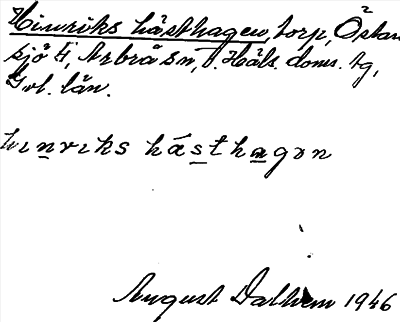 Hinriks hästhagen, torp, Östan
sjö
Arbrå sn, V. Häls. doms. tg,
Gvl. län.
hinriks hästhagon
August Dalhem 1946